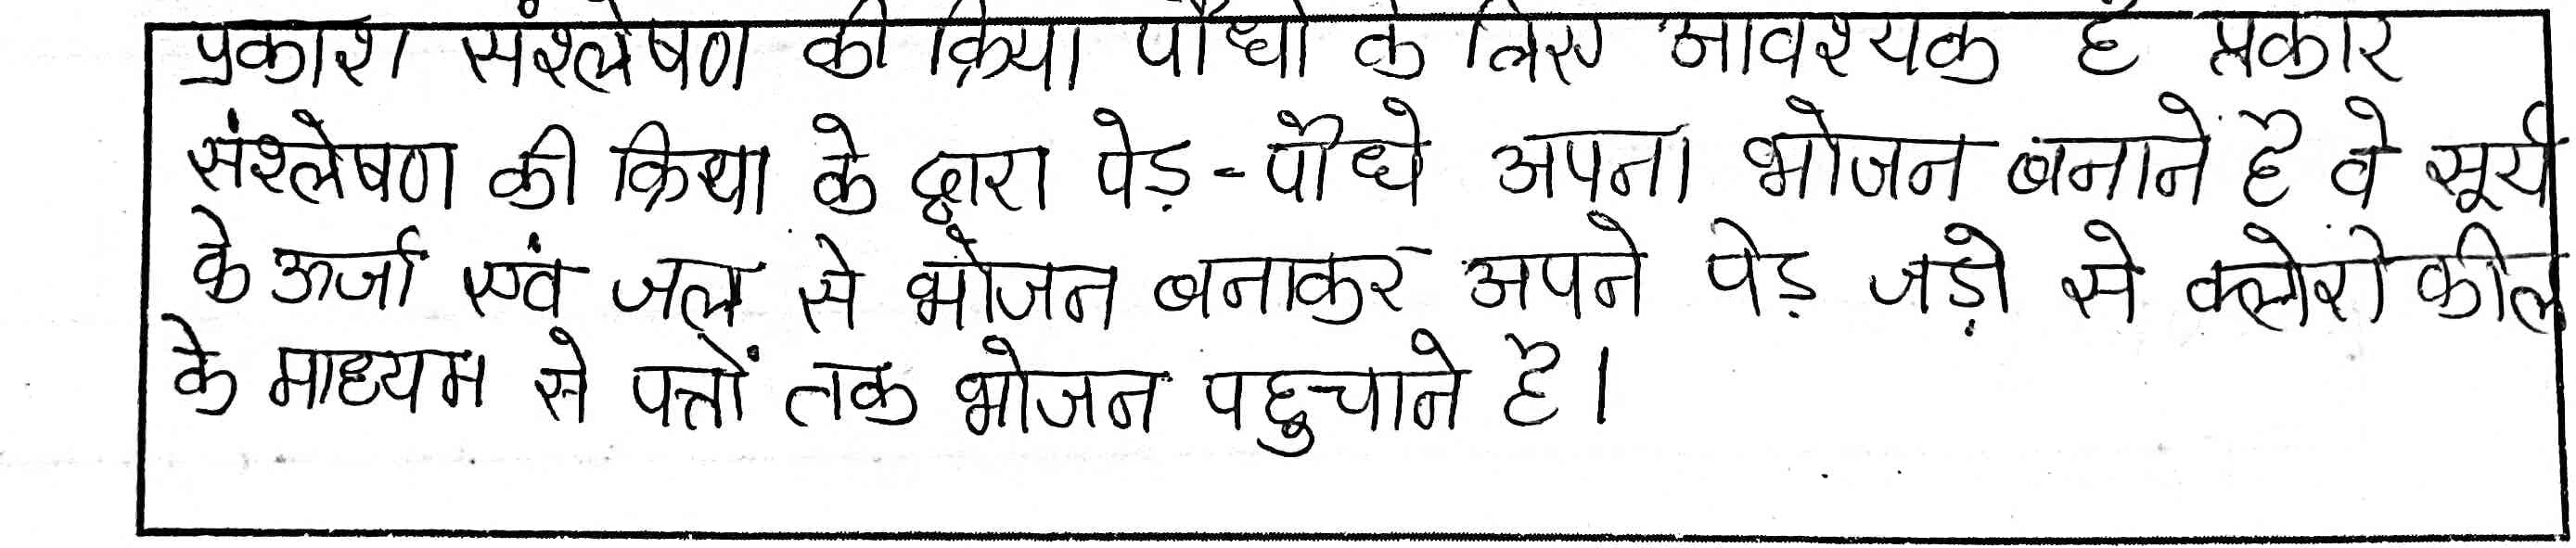 प्रकाश संश्लेषण की क्रिया पौधो के लिए आवश्यक है प्रकार
संश्लेषण की क्रिया के द्वारा पेड़-पौधे अपना भोजन बनाने है वे सूर्य
के ऊर्जा एवं जल से भोजन बनाकर अपने पेड़ जड़ो से क्लोरो कील
के माध्यम से पत्तों तक भोजन पहुचाने है।